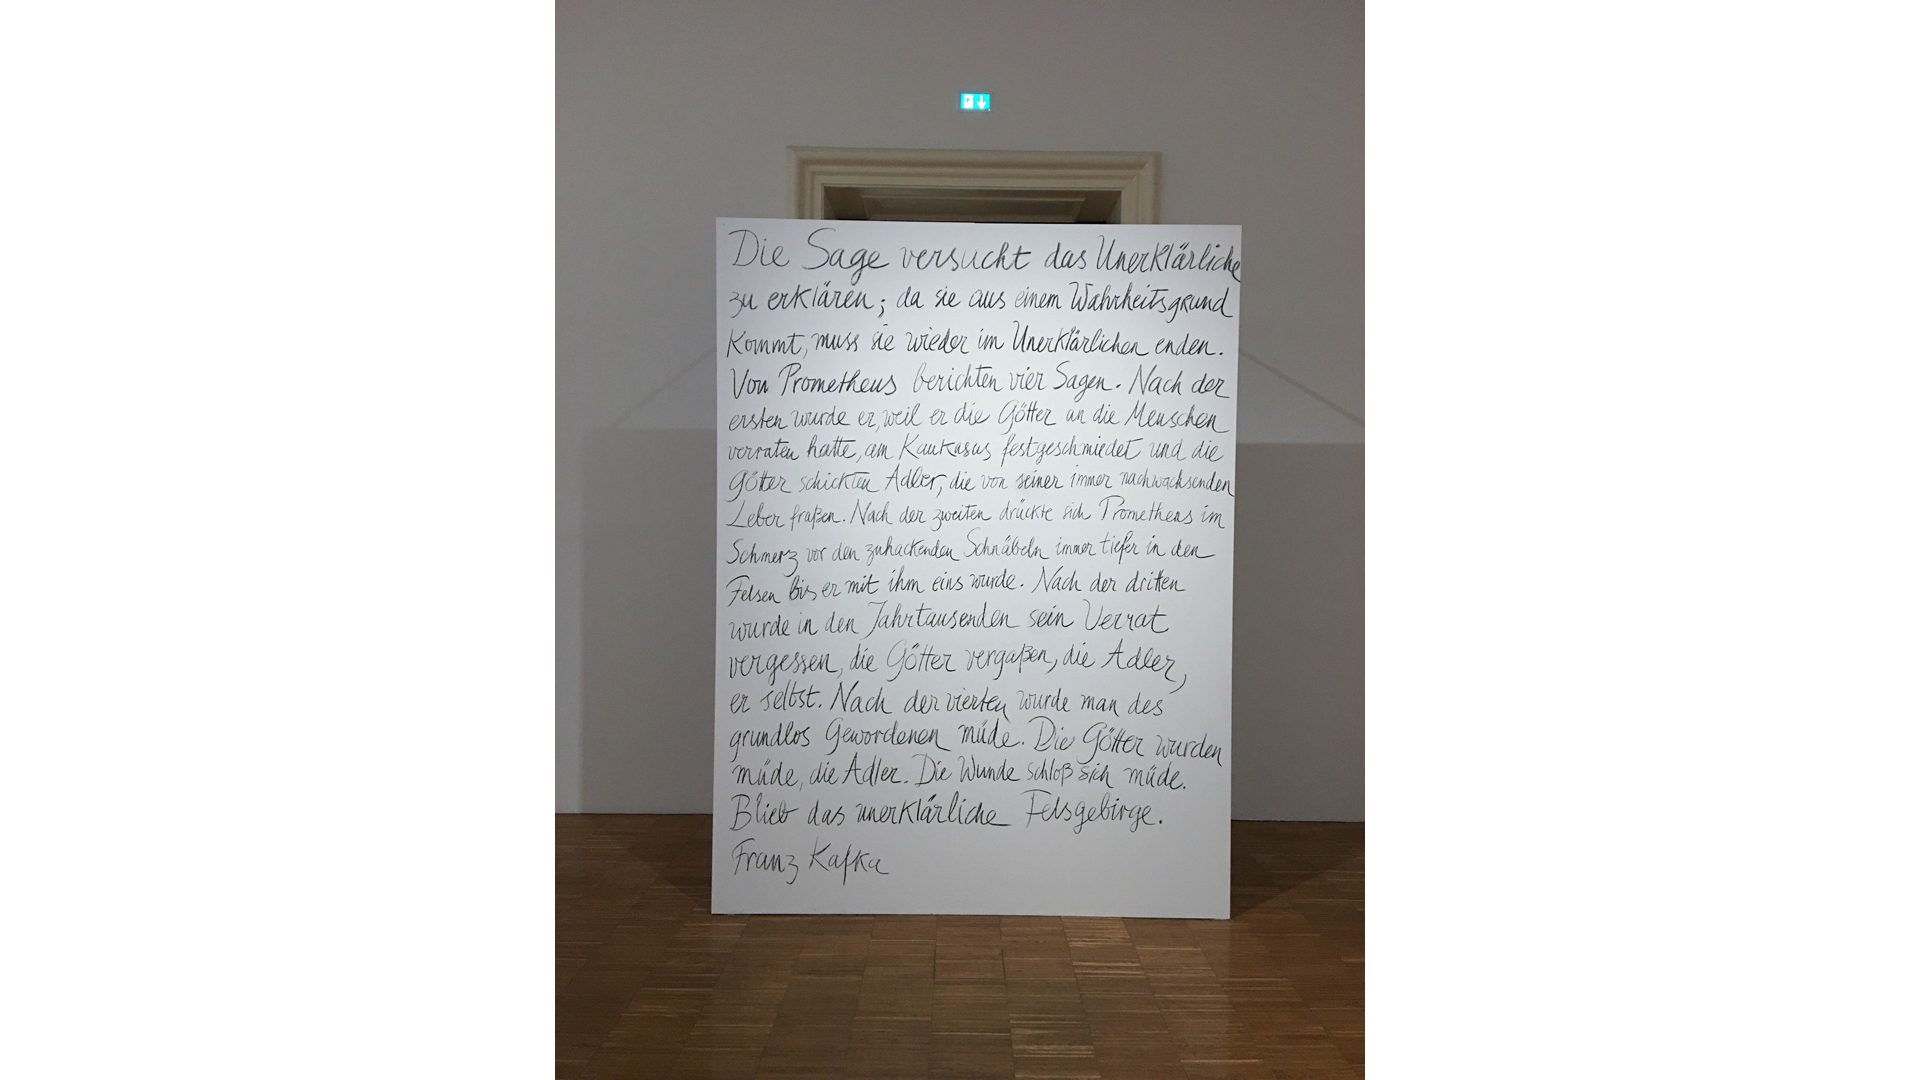 Die Sage versucht das Unerklärliche
zu erklären; da sie aus einem Wahrheitsgrund
kommt, muss sie wieder im Unerklärlichen enden.
Von Prometheus berichten vier Sagen. Nach der
ersten wurde er, weil er die Götter an die Menschen
verraten hatte, am Kaukasus festgeschmiedet und die
Götter schickten Adler, die von seiner immer nachwachsenden
Leber fraßen. Nach der zweiten drückte sich Prometheus im
Schmerz vor den zuhackenden Schnäbeln immer tiefer in den
Felsen bis er mit ihm eins wurde. Nach der dritten
wurde in den Jahrtausenden sein Verrat
vergessen, die Götter vergaßen, die Adler,
er selbst. Nach der vierten wurde man des
grundlos Gewordenen müde. Die Götter wurden
müde, die Adler. Die Wunde schloß sich müde.
Blieb das unerklärliche Felsgebirge.
Franz Kafka